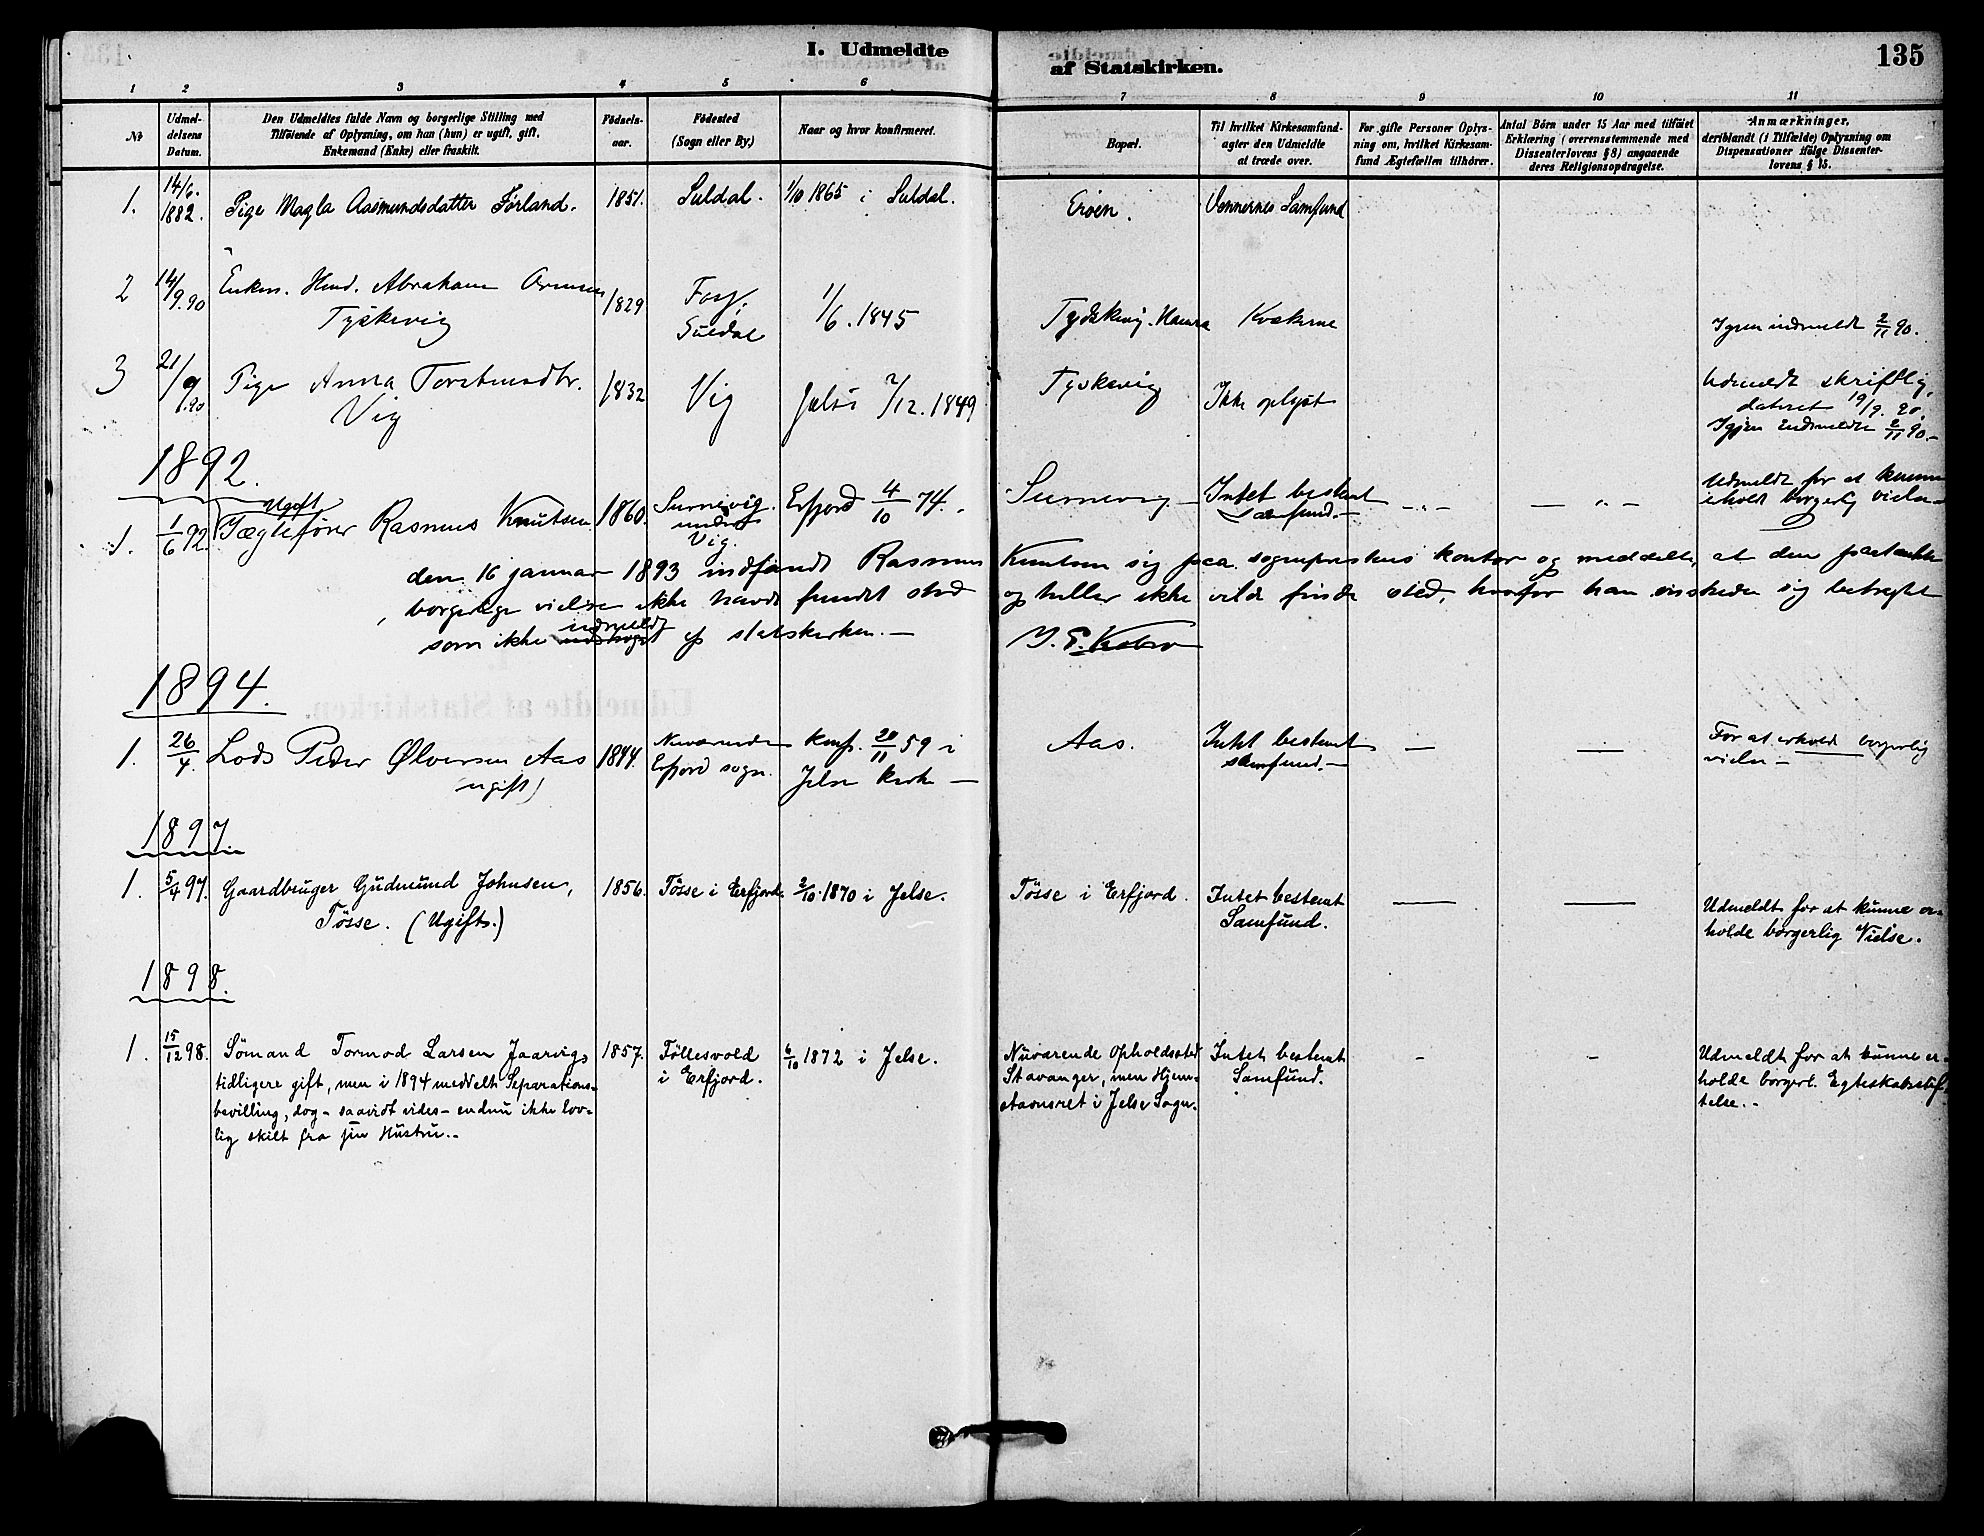 I. Udmeldte
af Statskirken.
135
1 2 3 4 5 6 7 8 9 10 11
No
Udmel-
delsens
Datum.
Den Udmeldtes fulde Navn og borgerlige Stilling med
Tilføiende af Oplysning, om han (hun) er ugift, gift,
Enkemand (Enke) eller fraskilt.
Fødsels-
aar.
Fødested
(Sogn eller By.)
Naar og hvor konfirmeret.
Bopæl.
Til hvilket Kirkesamfund-
agter den Udmeldte
at træde over.
For gifte Personer Oplys-
ning om, hvilket Kirkesam-
fund Ægtefællen tilhører.
Antal Børn under 15 Aar med tilføiet
Erklæring (overensstemmende med
Dissenterlovens § 8) angaaende
deres Religionsopdragelse.
Anmærkninger,
deriblandt (i Tilfælde) Oplysning om
Dispensationer ifølge Dissenter-
lovens § 15.
1. 14/6. 1882. Pige Magla Aasmundsdatter Førland. 1851. Suldal. 1/10 1865 i Suldal. Eröen. Vennernes Samfund
2 14/9.90 Enkem. Abraham
Tyskevig 1829 Suldal 1/6. 1845 Kvækerne Igjen indmeldt 2/11 90.
3 21/9.90 Pige Anna
Vig 1832 Vig 7/12. 1849 Tyskevig Ikke oplyst Udmeldt skriftlig,
dateret 19/9. 90.
Igjen indmeldt 2/11 90.-
1892.
Ugift
1. 1/6 92. Rasmus Knutsen 1860. Surnevig.
under
Vig.
Erfjord 4/10 74. Surnevig - Intet bestemt
samfund.- - „ - - „ - Udmeldt for at kunne
erholde borgerlig vielse
den 16 januar 1893 indfandt Rasmus Knutsen sig paa sogneprestens kontor og meddelte, at den paatænkte
borgerlige vielse ikke havde fundet sted og heller ikke vilde finde sted, hvorfor han ønskede sig betragtet
som ikke udmeldt af statskirken.-
1894.
1. 26/4. Lods Peder Ølversen Aas
ugift) 1844. Nuværende
Erfjord sogn. Konf. 20/11 59 i
Jelse kirke - Aas. Intet bestemt
samfund.- - - For at erholde borgerlig
vielse -
1897.
1. 5/4 97. Gaardbruger Gudmund Johnsen,
Tösse. (Ugift.) 1856. Tösse i Erfjord. 2/10. 1870 i Jelse. Tösse i Erfjord. Intet bestemt
Samfund. - - Udmeldt for at kunne er-
holde borgerlig Vielse.
1898.
1. 15/12 98. Sömand Tormod Larsen Jaarvig,
tidligere gift, men i 1894 meddelt Separations-
bevilling, dog - saavidt vides - endnu ikke lov-
lig skilt fra sin Hustru.- 1857. Föllesvold
i Erfjord. 6/10 1872 i Jelse. Nuværende Opholdssted
Stavanger, men Hjem-
stavnsret i Jelse Sogn. Intet bestemt
Samfund. - - Udmeldt for at kunne er-
holde borgerl. Egteskabsstif-
telse.-